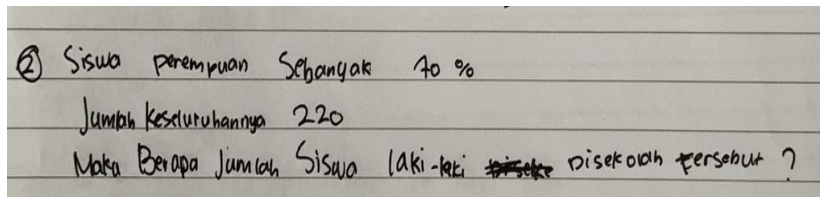 ② Siswa perempuan Sebanyak 70 %
Jumlah Keseluruhannya 220
Maka Berapa Jumlah Siswa laki-laki Disekolah tersebut ?